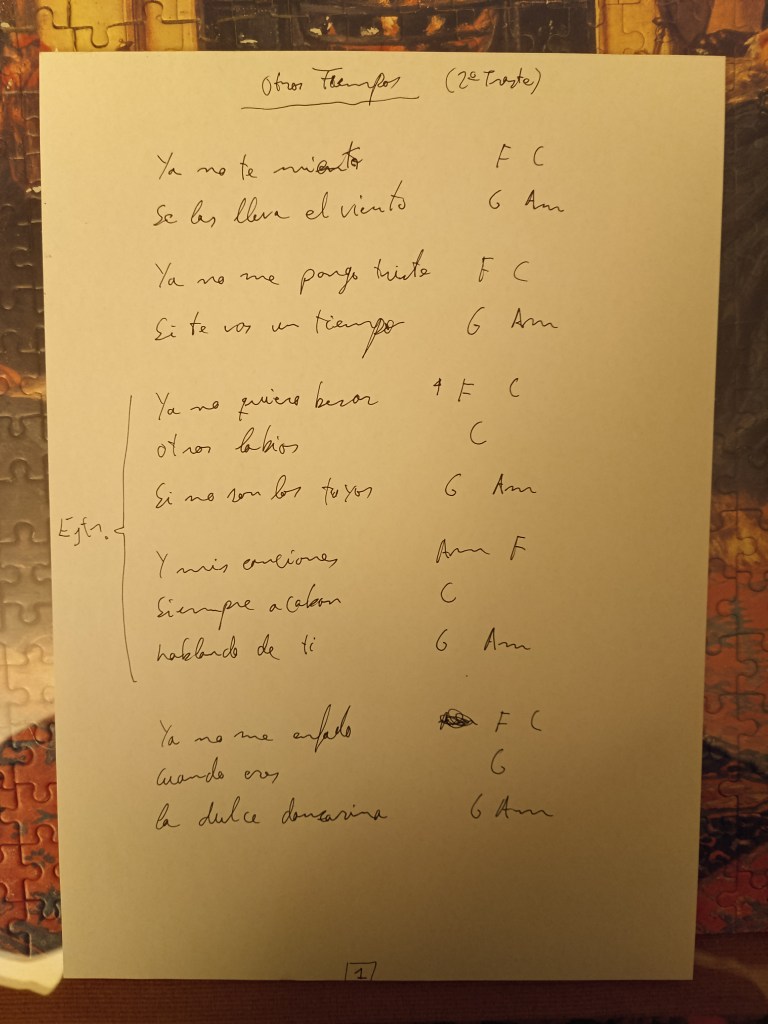 Otros Tiempos (2º Traste)
Ya no te miento F C
Se las lleva el viento G Am
Ya no me pongo triste F C
Si te vas un tiempo G Am
Ya no quiero besar F C
otros labios C
Si no son los tuyos G Am
Estr.
Y mis canciones Am F
Siempre acaban C
hablando de ti G Am
Ya no me enfado F C
cuando eres G
la dulce danzarina G Am
1